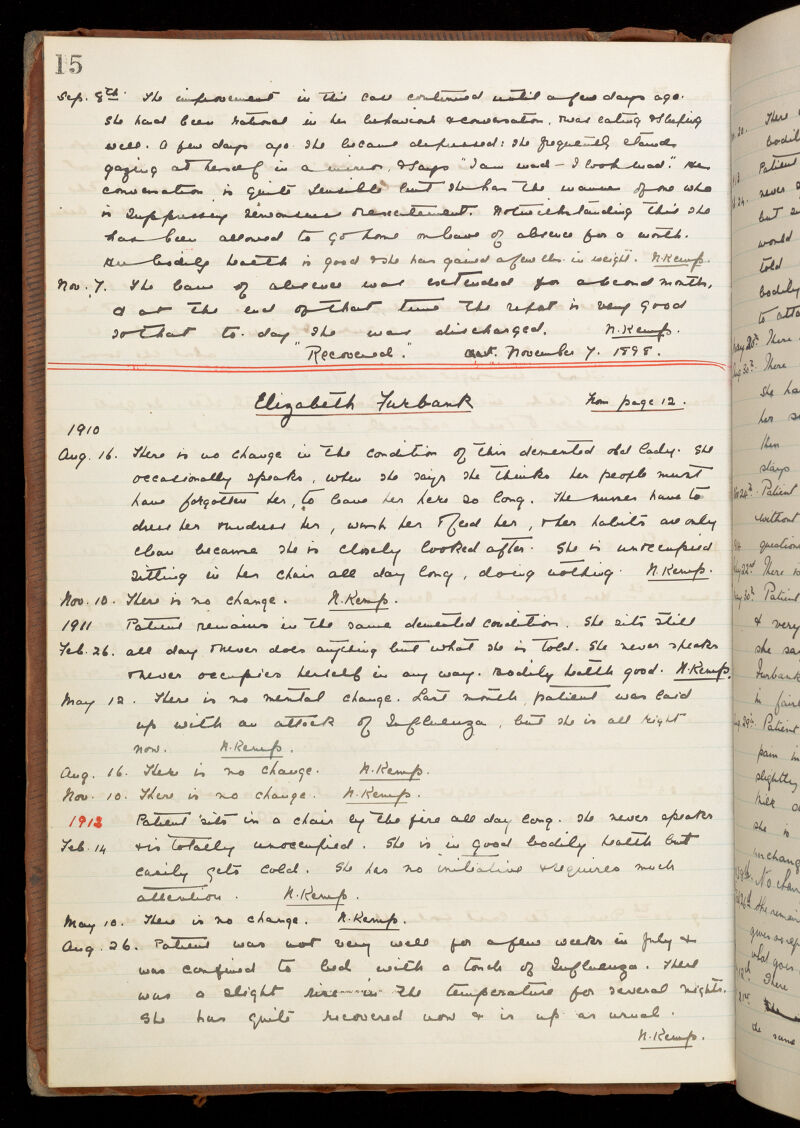 15
Sep. 8th. The improvement in this case continued until a few days ago.
She had been rational in her behaviour & conversation, & was eating & sleeping
well. A few days ago she became depressed: she frequently stands
gazing at herself in a mirror, & says "I am mad – I look mad." Her
conversation is quite sensible but she has the manner of one who
is suppressing nervousness & excitement. Notwithstanding this she
has been allowed to go home on leave of absence for a month.
Her bodily health is good & she has gained a few lbs. in weight. N. Kemp.
Nov. 7. The leave of absence was extended for a second month,
& at the end of that time the report is very good
so that to day she was discharged. N. Kemp.
"Recovered". November 7. 1898.
Elizabeth Furbank From page 12.
1910
Aug. 16. There is no change in the condition of this demented old lady. She
occasionally speaks, when she says she thinks her people must
have forgotten her, to leave her here so long. The nurses have to
dress her & undress her, wash her & feed her, & her habits are only
clean because she is closely looked after. She is unoccupied
sitting in her chair all day long, doing nothing. N. Kemp.
Nov. 10. There is no change. N. Kemp.
1911 Patient remains in the same demented condition. She sits still
Feb. 26. all day & never does anything but what she is told. She never speaks
& never occupies herself in any way. Bodily health good. N. Kemp.
May 12. There is no mental change. Last month, patient was laid
up with an attack of Influenza, but she is all right
now. N. Kemp.
Aug. 16. There is no change. N. Kemp.
Nov. 10. There is no change. N. Kemp.
1912 Patient sits in a chair by the fire all day long. She never speaks
Feb. 14 & is totally unoccupied. She is in good bodily health but
easily gets cold. She has no initiative & requires much
attention. N. Kemp.
May 10. There is no change. N. Kemp.
Aug. 26. Patient was not very well for a few weeks in July &
was confined to bed with a touch of Influenza. There
was a slight rise in the temperature for several nights.
She has quite recovered now & is up as usual.
N. Kemp.
There
bodil
Patient
never
but
would
told
bodily
to atta
There
There
She ha
her s
then
stays
Patient
without
question
There is
Patient
& very
she sa
Furbank
in fair
Patient
pain in
slightly
milk
she is
no chang
No chan
She remain
gives no rep
what goes
There
the same